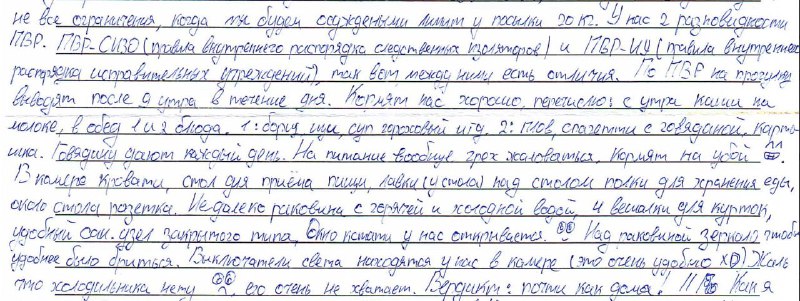 не все ограничения, когда мы будем осужденными лимит у посылки 20 кг. У нас 2 разновидности
ПВР. ПВР-СИЗО (правила внутреннего распорядка следственных изоляторов) и ПВР-ИУ (правила внутреннего
распорядка исправительных учреждений), так вот между ними есть отличия. По ПВР на прогулку
выводят после 9 утра в течение дня. Кормят нас хорошо, перечислю: с утра каши на
молоке, в обед 1 и 2 блюда. 1: борщ, щи, суп гороховый итд. 2: плов, спагетти с говядиной, карто-
шка. Говядину дают каждый день. На питание вообще грех жаловаться. Кормят на убой
В камере кровати, стол для приёма пищи, лавки (у стола) над столом полки для хранения еды,
около стола розетка. Недалеко раковина с горячей и холодной водой, и вешалки для курток,
удобный сан. узел закрытого типа, окно кстати у нас открывается. Над раковиной зеркало, чтобы
удобнее было бриться. Выключатели света находятся у нас в камере (это очень удобно XD) Жаль
что холодильника нету, его очень не хватает. Вердикт: почти как дома! Как я